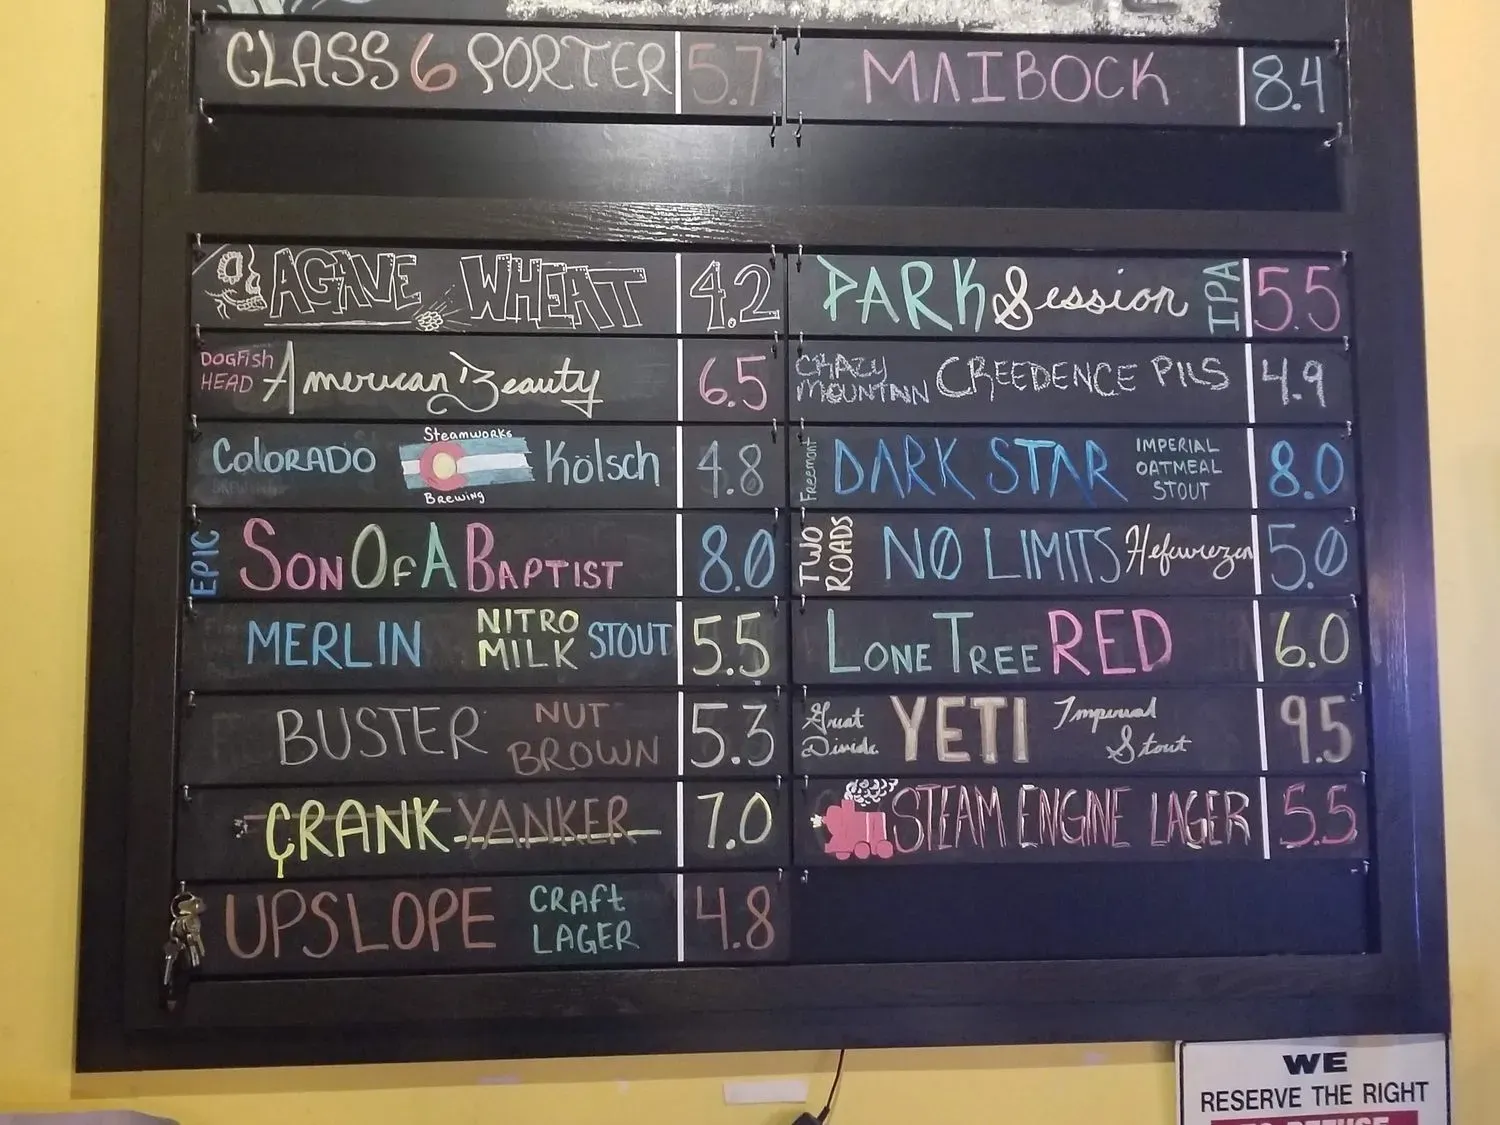 CLASS 6 PORTER 5.7
MAIBOCK 8.4
AGAVE WHEAT 4.2
PARK Session IPA 5.5
DOGFISH HEAD American Beauty 6.5
CRAZY MOUNTAIN CREEDENCE PILS 4.9
COLORADO Steamworks Brewing Kölsch 4.8
Freemont DARK STAR IMPERIAL OATMEAL STOUT 8.0
EPIC SON OF A BAPTIST 8.0
TWO ROADS NO LIMITS Hefewiezen 5.0
MERLIN NITRO MILK STOUT 5.5
LONE TREE RED 6.0
BUSTER NUT BROWN 5.3
Great Divide YETI Imperial Stout 9.5
CRANK YANKER 7.0
STEAM ENGINE LAGER 5.5
UPSLOPE CRAFT LAGER 4.8
WE
RESERVE THE RIGHT
TO REFUSE